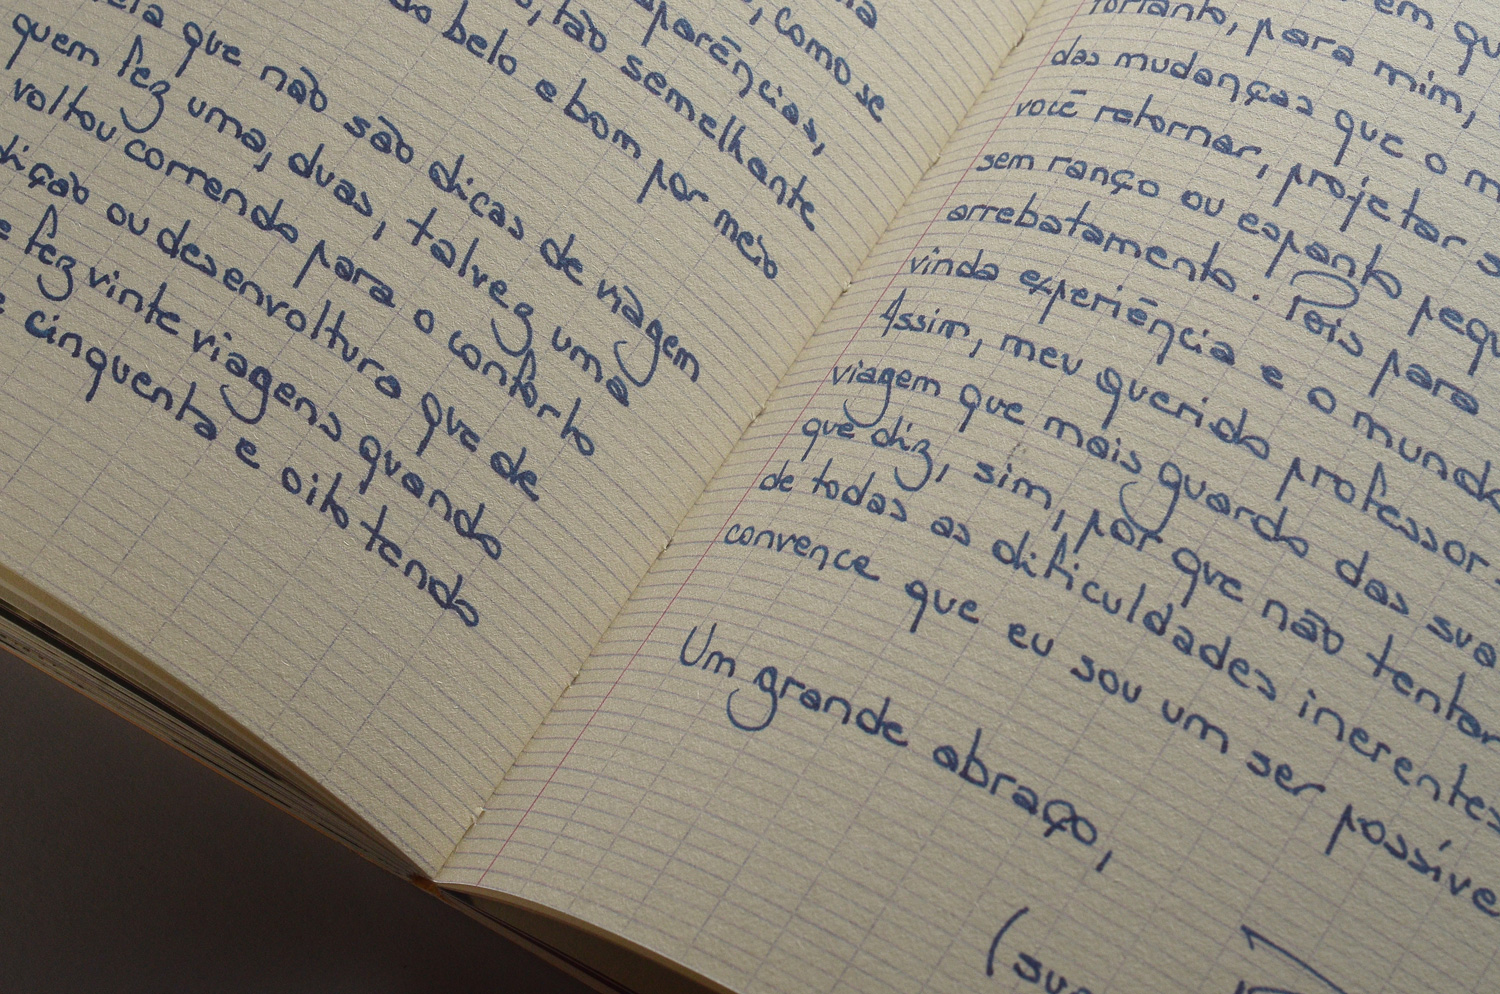 como se
aparências,
tão semelhante
belo e bom por meio
que não são dicas de viagem
quem fez uma, duas, talvez uma
voltou correndo para o conforto
ou desenvoltura que de
fez vinte viagens quando
cinquenta e oito tendo
em
portanto, para mim,
das mudanças que o
você retornar, projetar
sem ranço ou espanto
arrebatamento. Pois para
vinda experiência e o
Assim, meu querido professor
viagem que mais guardo das
que diz, sim, por que não tentar
de todas as dificuldades inerentes
convence que eu sou um ser
Um grande abraço,